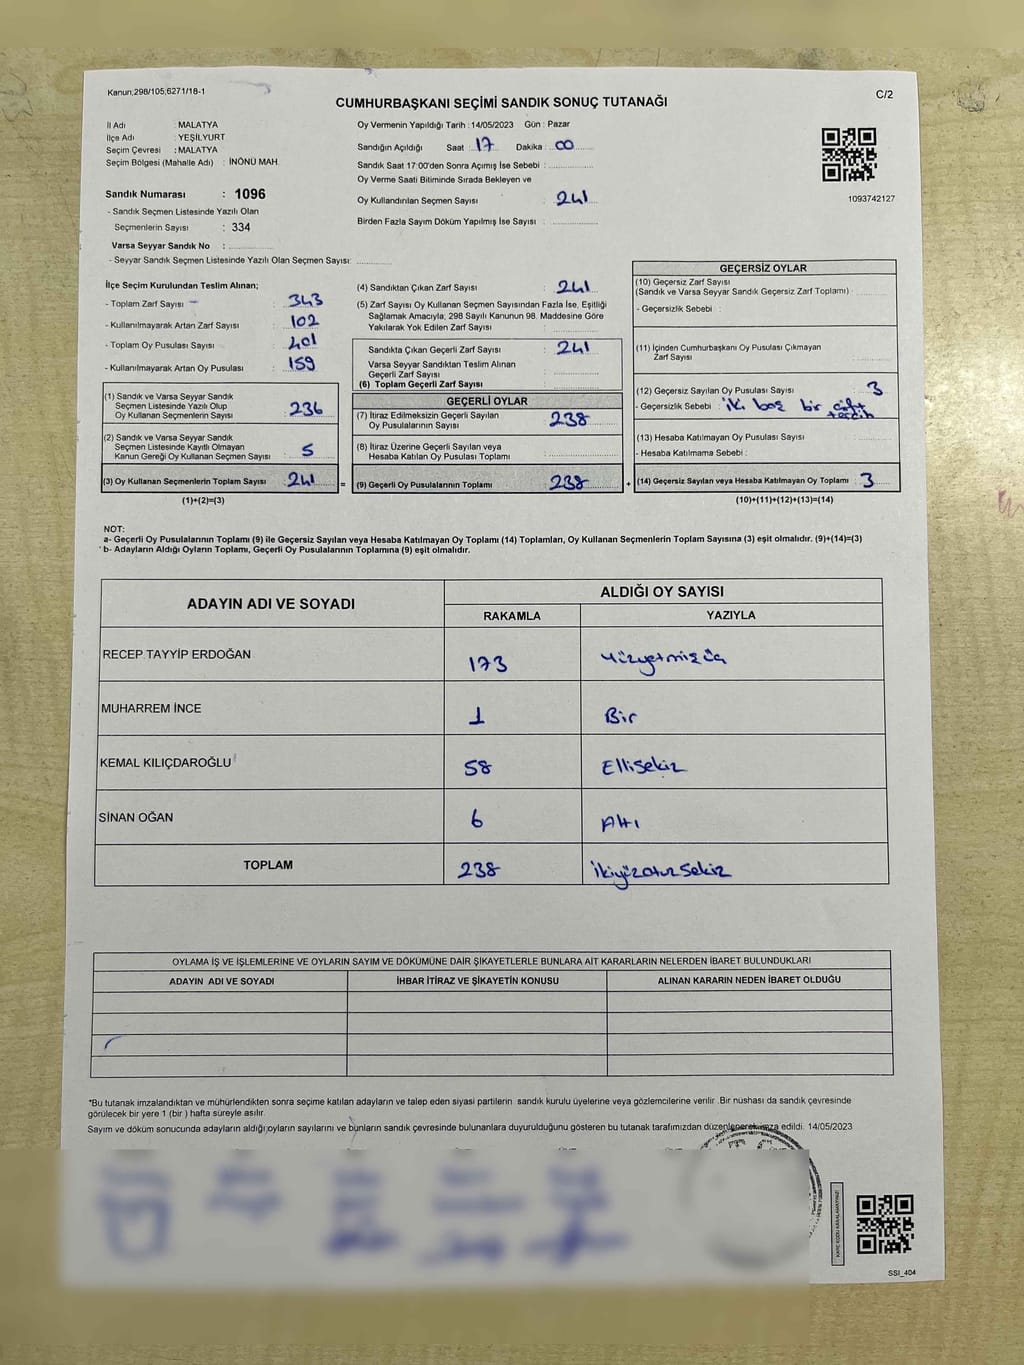 Kanun,298/105,6271/18-1
C/2
CUMHURBAŞKANI SEÇİMİ SANDIK SONUÇ TUTANAĞI
İl Adı : MALATYA
İlçe Adı : YEŞİLYURT
Seçim Çevresi : MALATYA
Seçim Bölgesi (Mahalle Adı) : İNÖNÜ MAH.
Sandık Numarası : 1096
- Sandık Seçmen Listesinde Yazılı Olan
Seçmenlerin Sayısı : 334
Varsa Seyyar Sandık No :
- Seyyar Sandık Seçmen Listesinde Yazılı Olan Seçmen Sayısı:
Oy Vermenin Yapıldığı Tarih : 14/05/2023 Gün : Pazar
Sandığın Açıldığı Saat 17 Dakika : 00
Sandık Saat 17:00'den Sonra Açımış İse Sebebi :
Oy Verme Saati Bitiminde Sırada Bekleyen ve
Oy Kullandırılan Seçmen Sayısı : 241
Birden Fazla Sayım Döküm Yapılmış İse Sayısı :
1093742127
İlçe Seçim Kurulundan Teslim Alınan;
- Toplam Zarf Sayısı : 343
- Kullanılmayarak Artan Zarf Sayısı : 102
- Toplam Oy Pusulası Sayısı : 401
- Kullanılmayarak Artan Oy Pusulası : 159
(1) Sandık ve Varsa Seyyar Sandık
Seçmen Listesinde Yazılı Olup
Oy Kullanan Seçmenlerin Sayısı : 236
(2) Sandık ve Varsa Seyyar Sandık
Seçmen Listesinde Kayıtlı Olmayan
Kanun Gereği Oy Kullanan Seçmen Sayısı : 5
(3) Oy Kullanan Seçmenlerin Toplam Sayısı : 241
(1)+(2)=(3)
(4) Sandıktan Çıkan Zarf Sayısı : 241
(5) Zarf Sayısı Oy Kullanan Seçmen Sayısından Fazla İse, Eşitliği
Sağlamak Amacıyla; 298 Sayılı Kanunun 98. Maddesine Göre
Yakılarak Yok Edilen Zarf Sayısı :
Sandıkta Çıkan Geçerli Zarf Sayısı : 241
Varsa Seyyar Sandıktan Teslim Alınan
Geçerli Zarf Sayısı :
(6) Toplam Geçerli Zarf Sayısı :
GEÇERLİ OYLAR
(7) İtiraz Edilmeksizin Geçerli Sayılan
Oy Pusulalarının Sayısı : 238
(8) İtiraz Üzerine Geçerli Sayılan veya
Hesaba Katılan Oy Pusulası Toplamı :
= (9) Geçerli Oy Pusulalarının Toplamı : 238 +
GEÇERSİZ OYLAR
(10) Geçersiz Zarf Sayısı
(Sandık ve Varsa Seyyar Sandık Geçersiz Zarf Toplamı) :
- Geçersizlik Sebebi :
(11) İçinden Cumhurbaşkanı Oy Pusulası Çıkmayan
Zarf Sayısı :
(12) Geçersiz Sayılan Oy Pusulası Sayısı : 3
- Geçersizlik Sebebi : iki boş bir çift
tercih
(13) Hesaba Katılmayan Oy Pusulası Sayısı :
- Hesaba Katılmama Sebebi :
(14) Geçersiz Sayılan veya Hesaba Katılmayan Oy Toplamı : 3
(10)+(11)+(12)+(13)=(14)
NOT:
a- Geçerli Oy Pusulalarının Toplamı (9) ile Geçersiz Sayılan veya Hesaba Katılmayan Oy Toplamı (14) Toplamları, Oy Kullanan Seçmenlerin Toplam Sayısına (3) eşit olmalıdır. (9)+(14)=(3)
b- Adayların Aldığı Oyların Toplamı, Geçerli Oy Pusulalarının Toplamına (9) eşit olmalıdır.
ADAYIN ADI VE SOYADI
ALDIĞI OY SAYISI
RAKAMLA YAZIYLA
RECEP TAYYİP ERDOĞAN 173 Yüzyetmişüç
MUHARREM İNCE 1 Bir
KEMAL KILIÇDAROĞLU 58 Ellisekiz
SİNAN OĞAN 6 Altı
TOPLAM 238 ikiyüzotuzsekiz
OYLAMA İŞ VE İŞLEMLERİNE VE OYLARIN SAYIM VE DÖKÜMÜNE DAİR ŞİKAYETLERLE BUNLARA AİT KARARLARIN NELERDEN İBARET BULUNDUKLARI
ADAYIN ADI VE SOYADI İHBAR İTİRAZ VE ŞİKAYETİN KONUSU ALINAN KARARIN NEDEN İBARET OLDUĞU
*Bu tutanak imzalandıktan ve mühürlendikten sonra seçime katılan adayların ve talep eden siyasi partilerin sandık kurulu üyelerine veya gözlemcilerine verilir .Bir nüshası da sandık çevresinde
görülecek bir yere 1 (bir ) hafta süreyle asılır.
Sayım ve döküm sonucunda adayların aldığı oyların sayılarını ve bunların sandık çevresinde bulunanlara duyurulduğunu gösteren bu tutanak tarafımızdan düzenlenerek imza edildi. 14/05/2023
T.C.
KARE KODU KARALAMAYINIZ!
SSI_404